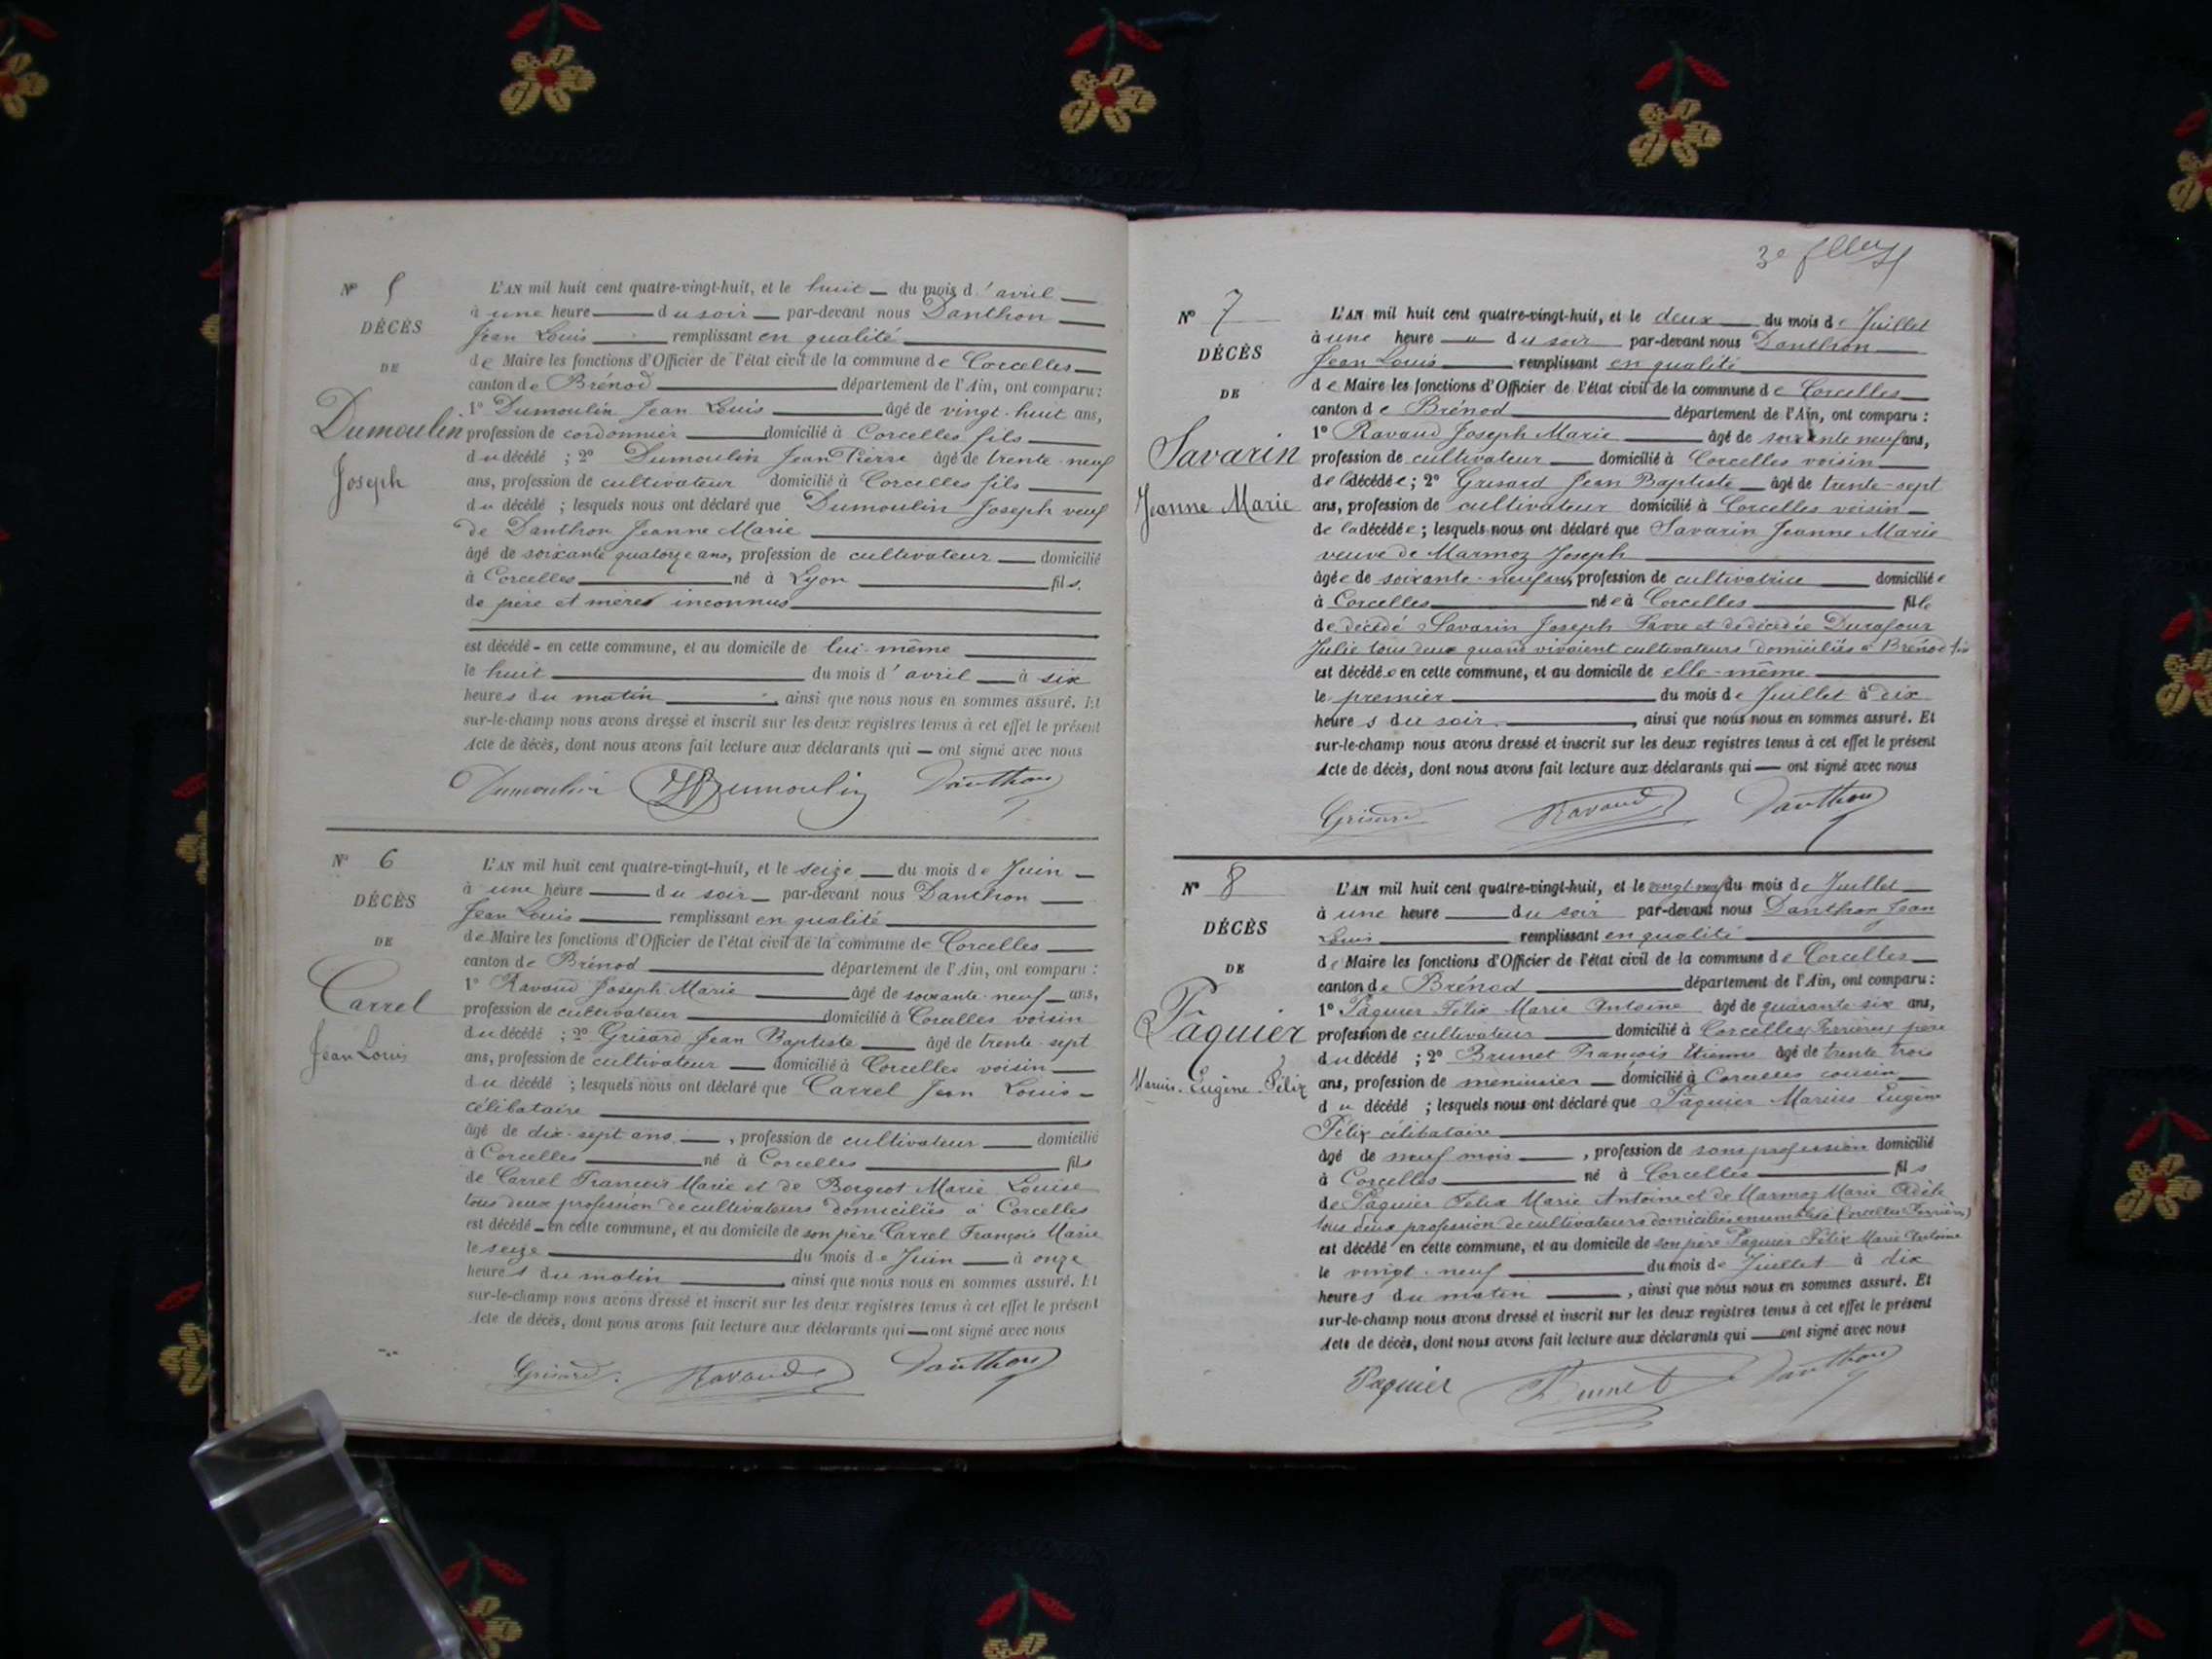 N° 5
DÉCÈS
DE
Dumoulin
Joseph
L'AN mil huit cent quatre-vingt-huit, et le huit du mois d'avril
à une heure du soir par-devant nous Danthon
Jean Louis remplissant en qualité
de Maire les fonctions d'Officier de l'état civil de la commune de Corcelles
canton de Brénod département de l'Ain, ont comparu :
1° Dumoulin Jean Louis âgé de vingt-huit ans,
profession de cordonnier domicilié à Corcelles fils
du décédé ; 2° Dumoulin Jean Pierre âgé de trente-neuf
ans, profession de cultivateur domicilié à Corcelles fils
du décédé ; lesquels nous ont déclaré que Dumoulin Joseph veuf
de Danthon Jeanne Marie
âgé de soixante quatorze ans, profession de cultivateur domicilié
à Corcelles né à Lyon fils
de père et mères inconnus
est décédé en cette commune, et au domicile de lui-même
le huit du mois d'avril à six
heures du matin, ainsi que nous nous en sommes assuré. Et
sur-le-champ nous avons dressé et inscrit sur les deux registres tenus à cet effet le présent
Acte de décès, dont nous avons fait lecture aux déclarants qui ont signé avec nous
Dumoulin Dumoulin Danthon
N° 6
DÉCÈS
DE
Carrel
Jean Louis
L'AN mil huit cent quatre-vingt-huit, et le seize du mois de Juin
à une heure du soir par-devant nous Danthon
Jean Louis remplissant en qualité
de Maire les fonctions d'Officier de l'état civil de la commune de Corcelles
canton de Brénod département de l'Ain, ont comparu :
1° Ravaud Joseph Marie âgé de soixante-neuf ans,
profession de cultivateur domicilié à Corcelles voisin
du décédé ; 2° Grisard Jean Baptiste âgé de trente-sept
ans, profession de cultivateur domicilié à Corcelles voisin
du décédé ; lesquels nous ont déclaré que Carrel Jean Louis
célibataire
âgé de dix-sept ans, profession de cultivateur domicilié
à Corcelles né à Corcelles fils
de Carrel François Marie et de Borgeot Marie Louise
tous deux profession de cultivateurs domiciliés à Corcelles
est décédé en cette commune, et au domicile de son père Carrel François Marie
le seize du mois de Juin à onze
heures du matin, ainsi que nous nous en sommes assuré. Et
sur-le-champ nous avons dressé et inscrit sur les deux registres tenus à cet effet le présent
Acte de décès, dont nous avons fait lecture aux déclarants qui ont signé avec nous
Grisard Ravaud Danthon
3e
N° 7
DÉCÈS
DE
Savarin
Jeanne Marie
L'AN mil huit cent quatre-vingt-huit, et le deux du mois de Juillet
à une heure du soir par-devant nous Danthon
Jean Louis remplissant en qualité
de Maire les fonctions d'Officier de l'état civil de la commune de Corcelles
canton de Brénod département de l'Ain, ont comparu :
1° Ravaud Joseph Marie âgé de soixante neuf ans,
profession de cultivateur domicilié à Corcelles voisin
de la décédée ; 2° Grisard Jean Baptiste âgé de trente-sept
ans, profession de cultivateur domicilié à Corcelles voisin
de la décédée ; lesquels nous ont déclaré que Savarin Jeanne Marie
veuve de Marmoz Joseph
âgée de soixante-neuf ans, profession de cultivatrice domiciliée
à Corcelles née à Corcelles fille
de décédé Savarin Joseph et de décédée Durafour
Julie tous deux quand vivaient cultivateurs domiciliés à Brénod
est décédée en cette commune, et au domicile de elle-même
le premier du mois de Juillet à dix
heures du soir, ainsi que nous nous en sommes assuré. Et
sur-le-champ nous avons dressé et inscrit sur les deux registres tenus à cet effet le présent
Acte de décès, dont nous avons fait lecture aux déclarants qui ont signé avec nous
Grisard Ravaud Danthon
N° 8
DÉCÈS
DE
Pâquier
Marius-Eugène-Félix
L'AN mil huit cent quatre-vingt-huit, et le vingt-neuf du mois de Juillet
à une heure du soir par-devant nous Danthon Jean
Louis remplissant en qualité
de Maire les fonctions d'Officier de l'état civil de la commune de Corcelles
canton de Brénod département de l'Ain, ont comparu :
1° Pâquier Félix Marie Antoine âgé de quarante-six ans,
profession de cultivateur domicilié à Corcelles père
du décédé ; 2° Brunet François Etienne âgé de trente trois
ans, profession de menuisier domicilié à Corcelles cousin
du décédé ; lesquels nous ont déclaré que Pâquier Marius Eugène
Félix célibataire
âgé de neuf mois, profession de sans profession domicilié
à Corcelles né à Corcelles fils
de Pâquier Félix Marie Antoine et de Marmoz Marie Adèle
tous deux profession de cultivateurs domiciliés
est décédé en cette commune, et au domicile de son père Pâquier Félix Marie Antoine
le vingt-neuf du mois de Juillet à dix
heures du matin, ainsi que nous nous en sommes assuré. Et
sur-le-champ nous avons dressé et inscrit sur les deux registres tenus à cet effet le présent
Acte de décès, dont nous avons fait lecture aux déclarants qui ont signé avec nous
Paquier Brunet Danthon